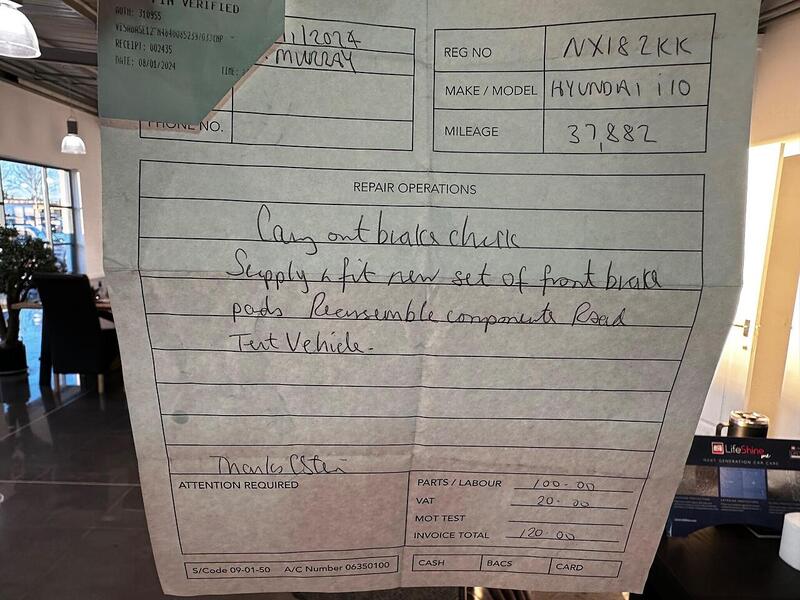 PIN VERIFIED
AUTH: 310955
RECEIPT: 002435
DATE: 08/01/2024
TIME:
1/2024
MURRAY
PHONE NO.
REG NO NX18 2KK
MAKE / MODEL HYUNDAI i10
MILEAGE 37,882
REPAIR OPERATIONS
Carry out brake check
Supply & fit new set of front brake
pads Reassemble components Road
Test Vehicle.
Thanks
ATTENTION REQUIRED
PARTS / LABOUR 100-00
VAT 20-00
MOT TEST
INVOICE TOTAL 120-00
S/Code 09-01-50 A/C Number 06350100
CASH BACS CARD
LifeShine
NEXT GENERATION CAR CARE